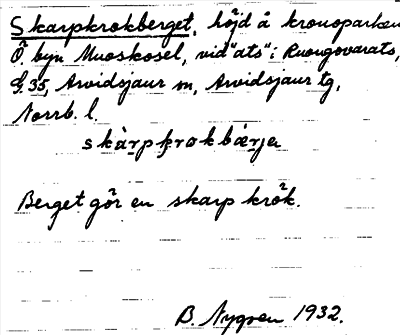 Skarpkrokberget, höjd å kronoparken
Ö. byn Muoskosel, vid "ats" i Ruongovarats,
G. 35, Arvidsjaur sn, Arvidsjaur tg,
Norrb. l.
skàrpkrokbærja
Berget gör en skarp krök.
B. Nygren 1932.